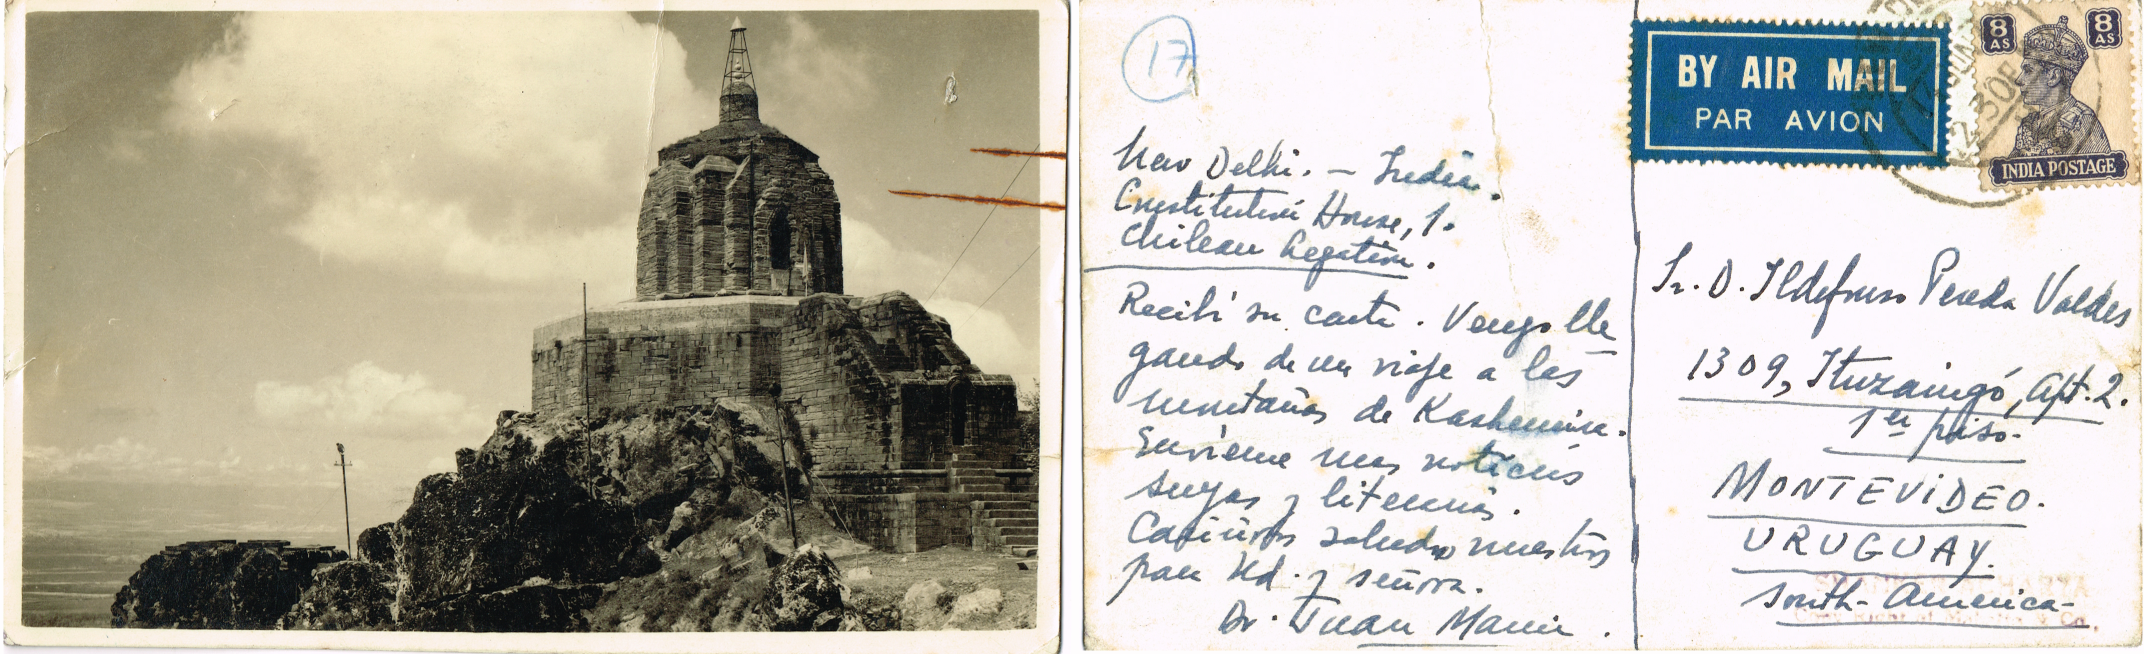 17
New Delhi. - India.
Constitution House, 1.
Chilean Legation.
Recibí su carta. Vengo lle
gando de un viaje a las
montañas de Kashemira.
Envieme mas noticias
suyas y literarias.
Cariñosos saludos nuestros
para Ud. y señora.
Dr. Juan Marin.
BY AIR MAIL
PAR AVION
8 AS
8 AS
INDIA POSTAGE
Sr. D. Ildefonso Pereda Valdes
1309, Ituzaingó, Apt. 2.
1er piso.
MONTEVIDEO.
URUGUAY.
South-America-